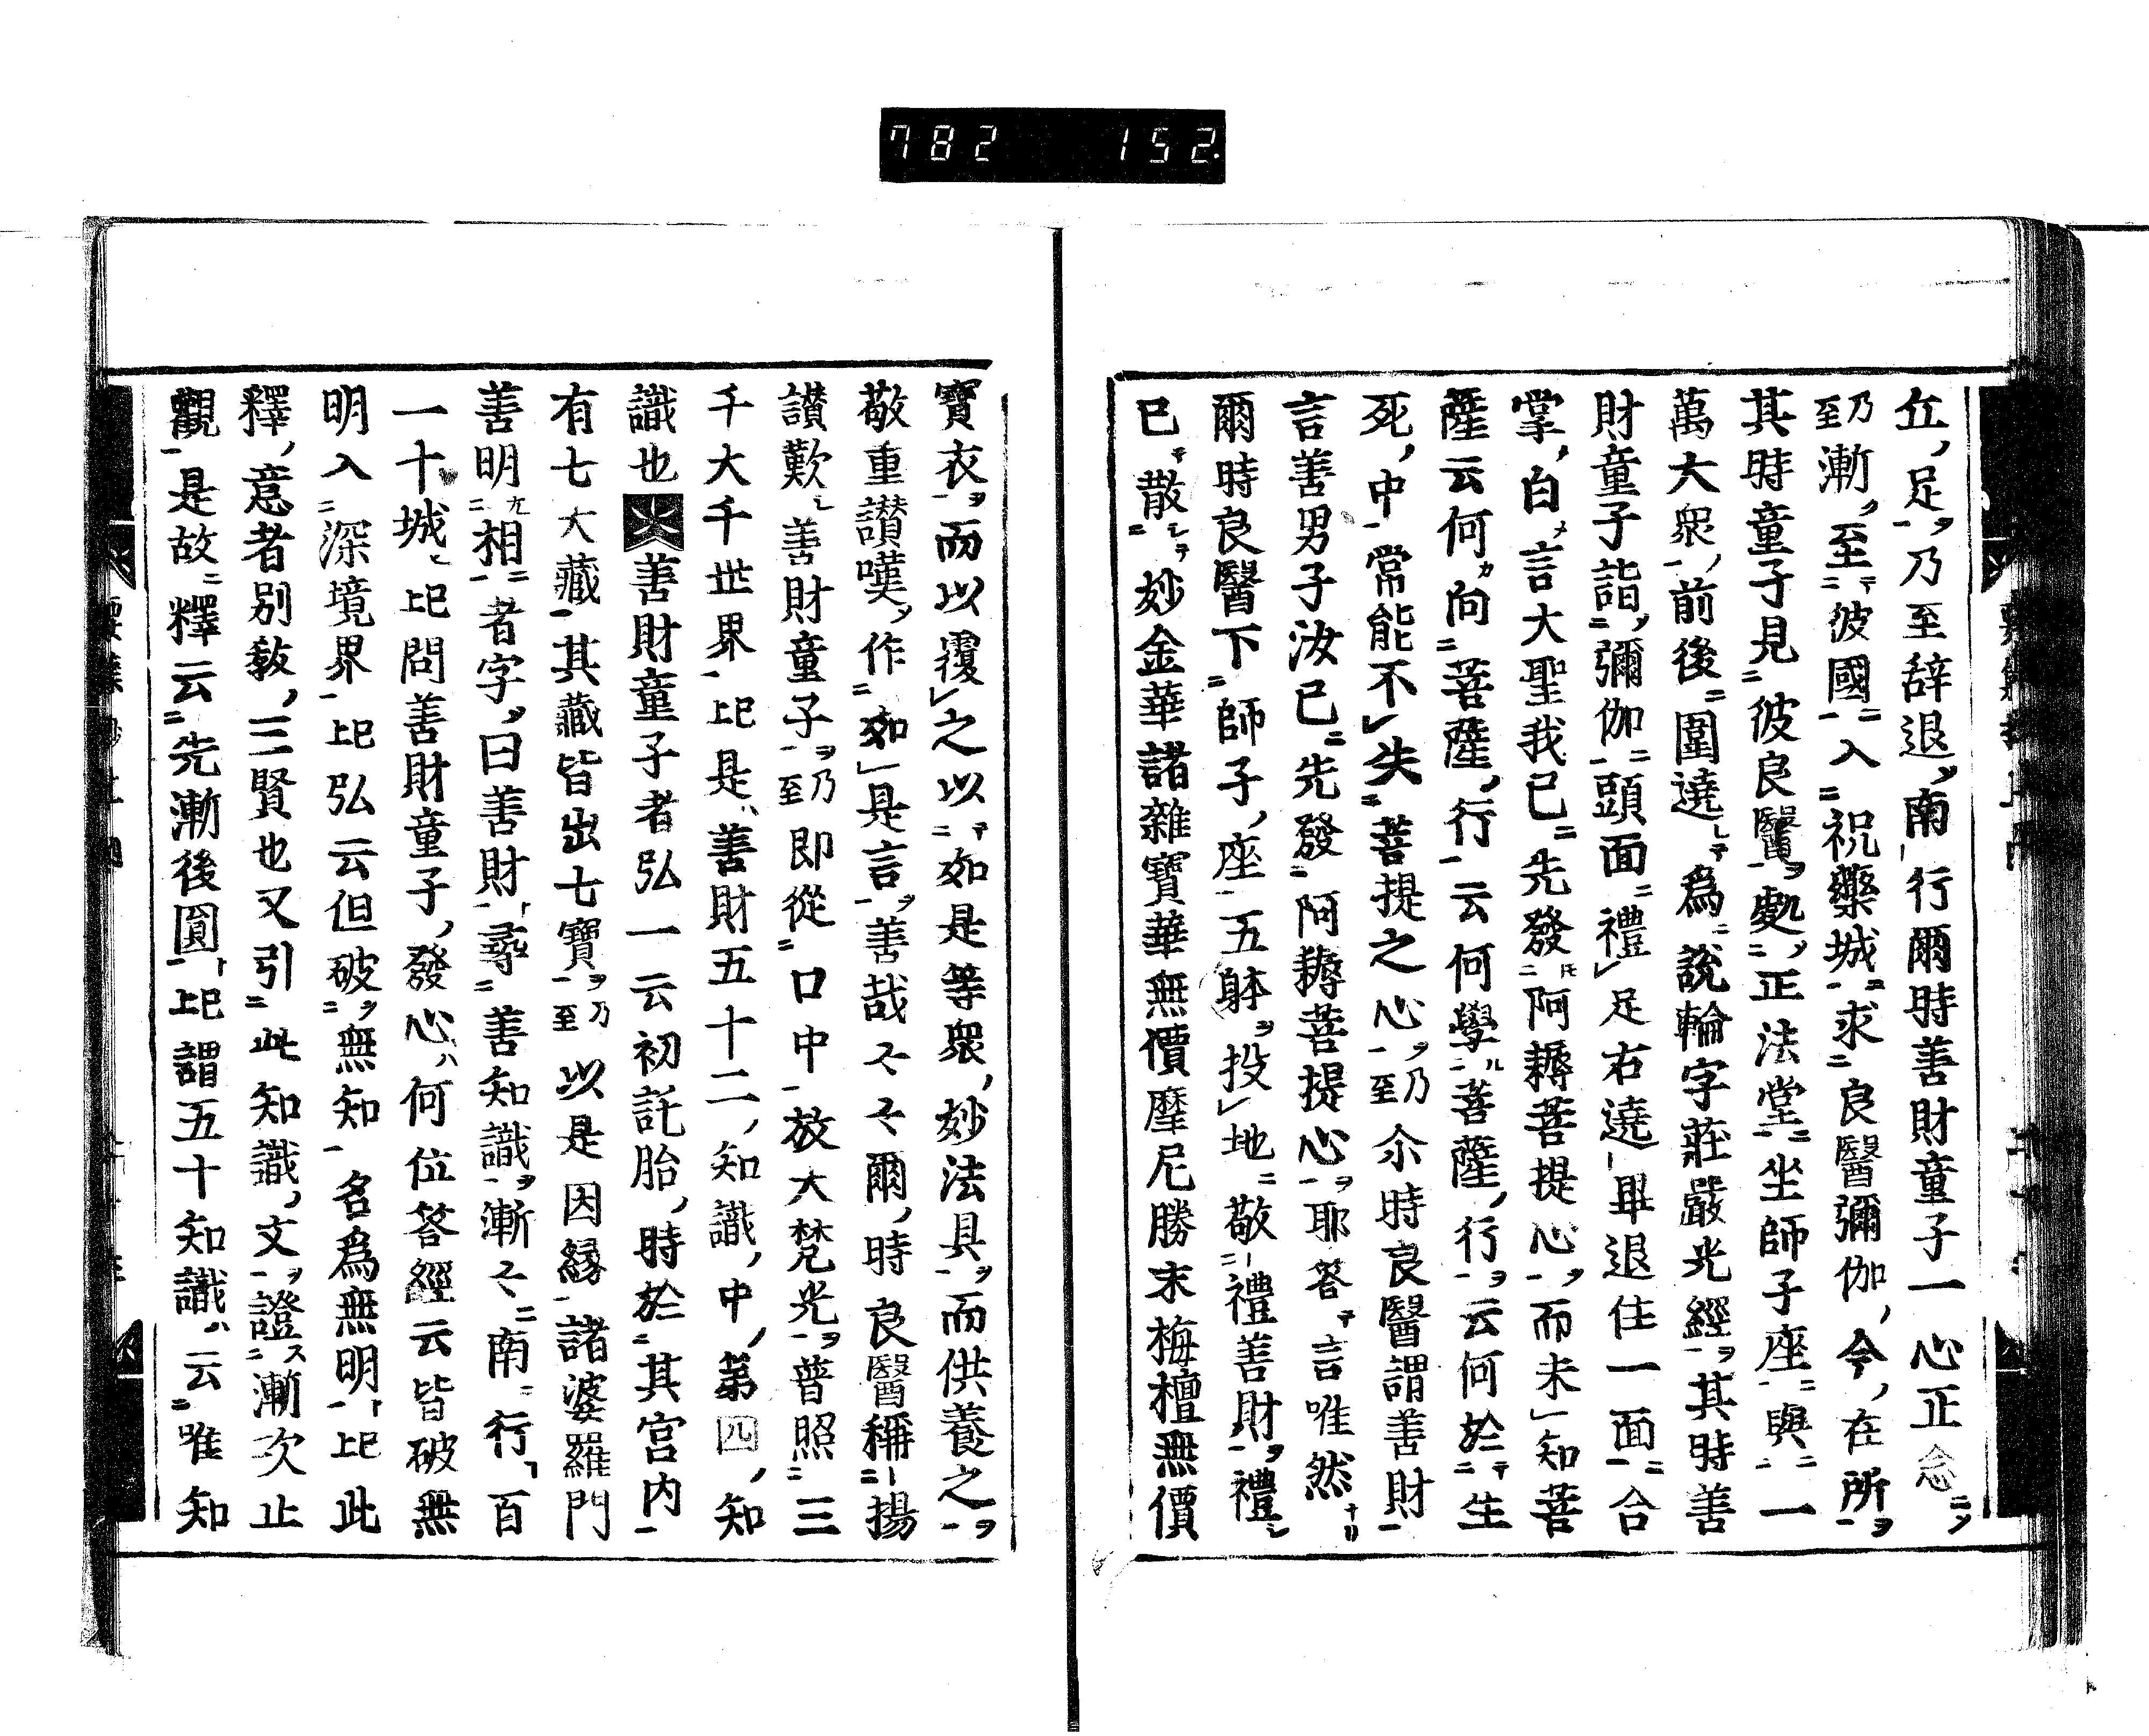 782 152.
丘足乃至辞退南行爾時善財童子一心正念
乃至漸至彼國入祝藥城求良醫彌伽今在所
其時童子見彼良醫處正法堂坐師子座與一
萬大衆前後圍遶為說輪字莊嚴光經其時善
財童子詣彌伽頭面禮足右遶畢退住一面合
掌白言大聖我已先發阿耨菩提心而未知菩
薩云何向菩薩行云何學菩薩行云何於生
死中常能不失菩提之心乃至尒時良醫謂善財
言善男子汝已先發阿耨菩提心耶答言唯然
爾時良醫下師子座五躰投地敬禮善財禮
已散妙金華諸雜寶華無價摩尼勝末栴檀無價
寶衣而以覆之以如是等衆妙法具而供養之
敬重讃嘆作如是言善哉〻〻爾時良醫稱揚
讃歎善財童子乃至即從口中放大梵光普照三
千大千世界上已是善財五十二知識中第四知
識也 善財童子者弘一云初託胎時於其宮内
有七大藏其藏皆出七寶乃至以是因縁諸婆羅門
善明相者字曰善財尋善知識漸〻南行百
一十城上已問善財童子發心何位答經云皆破無
明入深境界上已弘云但破無知名為無明上已此
釋意者別教三賢也又引此知識文證漸次止
觀是故釋云先漸後圓上已謂五十知識云唯知